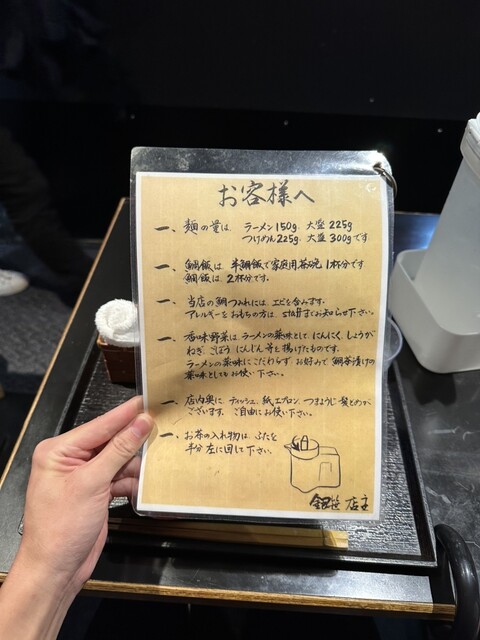 お客様へ
一、麺の量は、ラーメン150g. 大盛 225g
つけめん225g. 大盛 300gです
一、鯛飯は、半鯛飯で家庭用茶碗1杯分です。
鯛飯は、2杯分です。
一、当店の鯛つみれには、エビを含みます。
アレルギーをおもちの方は、staffまでお知らせ下さい。
一、香味野菜は、ラーメンの薬味として、にんにく、しょうが
ねぎ、ごぼう、にんじん等を揚げたものです。
ラーメンの薬味にこだわらず お好みで 鯛茶漬けの
薬味としてもお使い下さい。
一、店内奥に、ティッシュ、紙エプロン、つまようじ・髪どめが
ございます。ご自由にお使い下さい。
一、お茶の入れ物は、ふたを
半分左に回して下さい。
銀笹 店主